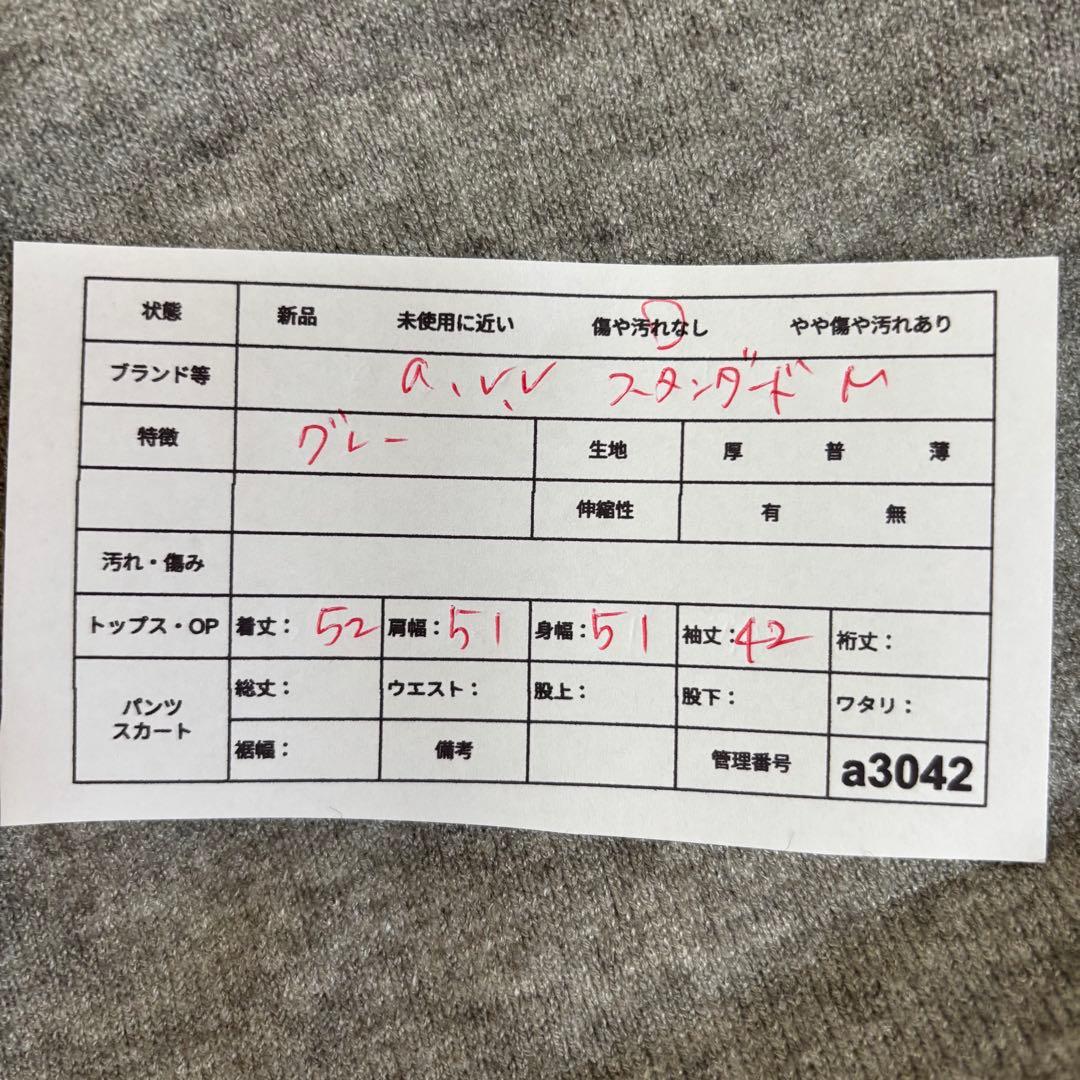 状態 新品 未使用に近い 傷や汚れなし やや傷や汚れあり
ブランド等 a.v.v スタンダード M
特徴 グレー 生地 厚 普 薄
伸縮性 有 無
汚れ・傷み
トップス・OP 着丈: 52 肩幅: 51 身幅: 51 袖丈: 42 裄丈:
パンツ スカート 総丈: ウエスト: 股上: 股下: ワタリ:
裾幅: 備考 管理番号 a3042